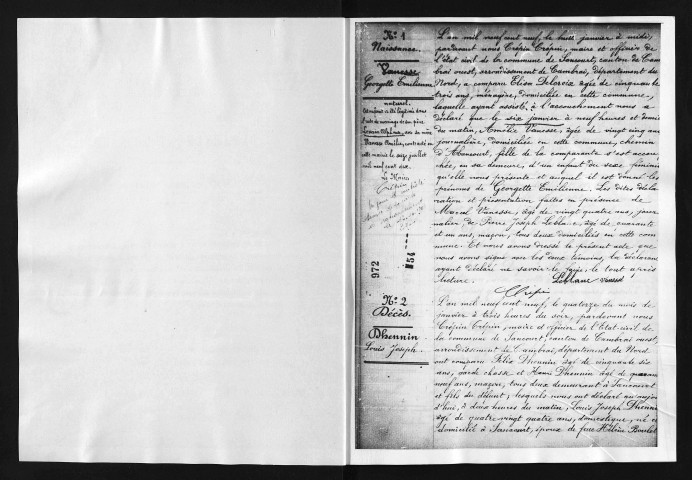 Nº 1
Naissance.
Vanesse
Georgette Emilienne
naturel.
mil neuf cent dix
Le Maire
972
154
Nº 2
Décès.
Dhennin
Louis Joseph.
L'an mil neuf cent neuf, le huit janvier à midi,
pardevant nous Crépin Crépin, maire et officier de
l'état civil de la commune de Sancourt, canton de Cam
brai ouest, arrondissement de Cambrai, département du
Nord, a comparu Elisa Delcroix âgée de cinquante
trois ans, ménagère, domiciliée en cette commune,
laquelle ayant assisté à l'accouchement nous a
déclaré que le six janvier à neuf heures et demie
du matin, Amélie Vanesse, âgée de vingt cinq ans
journalière, domiciliée en cette commune, chemin
d'Abancourt, fille de la comparante s'est accou
chée, en sa demeure, d'un enfant du sexe féminin
qu'elle nous présente et auquel il est donné les
prénoms de Georgette Emilienne. Les dites décla
ration et présentation faites en présence de
Marcel Vanesse, âgé de vingt quatre ans, jour
nalier et Pierre Joseph Leblanc âgé de quarante
et un ans, maçon, tous deux domiciliés en cette com
mune. Et nous avons dressé le présent acte que
nous avons signé avec les deux témoins, la déclarante
ayant déclaré ne savoir le faire, le tout après
lecture. Leblanc Vanesse
Crépin
L'an mil neuf cent neuf, le quatorze du mois de
janvier à trois heures du soir, pardevant nous
Crépin Crépin, maire et officier de l'Etat-civil de
la commune de Sancourt, canton de Cambrai ouest,
arrondissement de Cambrai, département du Nord,
ont comparu Félix Dhennin âgé de cinquante six
ans, garde chasse et Henri Dhennin âgé de quarante
neuf ans, maçon, tous deux demeurant à Sancourt
et fils du défunt; lesquels nous ont déclaré aujour
d'hui, à deux heures du matin, Louis Joseph Dhennin
âgé de quatre-vingt quatre ans, domestique, né et
domicilié à Sancourt, époux de feue Hélène Boulet